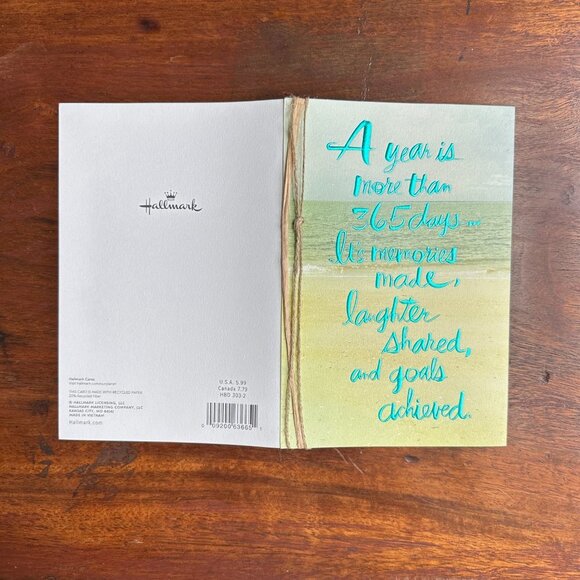 Hallmark
Hallmark Cares
THIS CARD IS MADE WITH RECYCLED PAPER
20% Recycled Fiber
© HALLMARK LICENSING, LLC
HALLMARK MARKETING COMPANY, LLC
KANSAS CITY, MO 64141
MADE IN VIETNAM
Hallmark.com
U.S.A. 5.99
Canada 7.75
HBD 303-2
0 09200 63665
A year is
more than
365 days...
It's memories
made,
laughter
shared,
and goals
achieved.